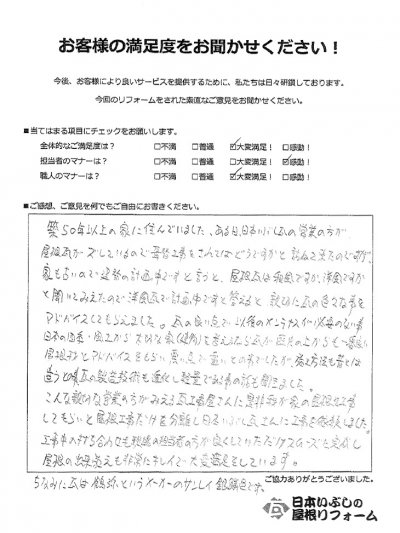 お客様の満足度をお聞かせください！
今後、お客様により良いサービスを提供するために、私たちは日々研鑽しております。
今回のリフォームをされた素直なご意見をお聞かせください。
■当てはまる項目にチェックをお願いします。
全体的なご満足度は？ □不満 □普通 ☑大変満足！ □感動！
担当者のマナーは？ □不満 □普通 □大変満足！ ☑感動！
職人のマナーは？ □不満 □普通 ☑大変満足！ □感動！
■ご感想、ご意見を何でもご自由にお書きください。
築50年以上の家に住んでいました。ある日、日本いぶし瓦の営業の方が
屋根瓦がズレしているので葺替工事をされてはどうですかと訪ねて来たのですが、
家も古いので建替の計画中ですと言うと、屋根瓦は和風ですか、洋風ですか
と聞いてみえたので洋風瓦で計画中ですと答えると親切に瓦の色々な事を
アドバイスしてもらえました。瓦の良い点で以後のメンテナンスが必要のない事
日本の四季・風土から大切な家(建物)を考えたら瓦が
屋根材とアドバイスをもらい悪い点で重いとの事でしたが、
違う と瓦の製造技術も進化し軽量である事の話も聞きました。
こんな親切な営業の方がみえる瓦工事屋さんに是非我が家の屋根を工事
してもらいと屋根工事だけを分離し日本いぶし瓦さんに工事を依頼しました。
工事中の打ち合わせも現場の担当者の方が良くしていただけスムーズに完成し
屋根の出来栄えも非常にキレイで大変満足をしています。
ちなみに瓦は鶴弥というメーカーのサンレイ銀鱗色です。
ご協力ありがとうございました。
日本いぶしの
屋根リフォーム